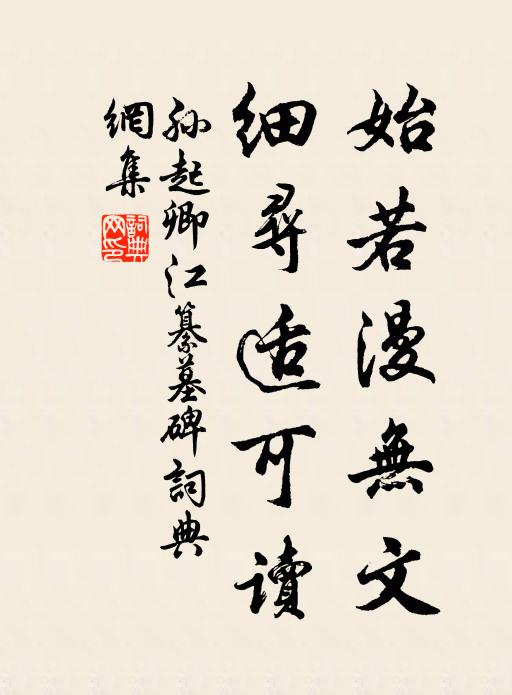 始若漫無文
細尋适可讀
孫起卿江纂墓碑詞典
網集
詞典
网印